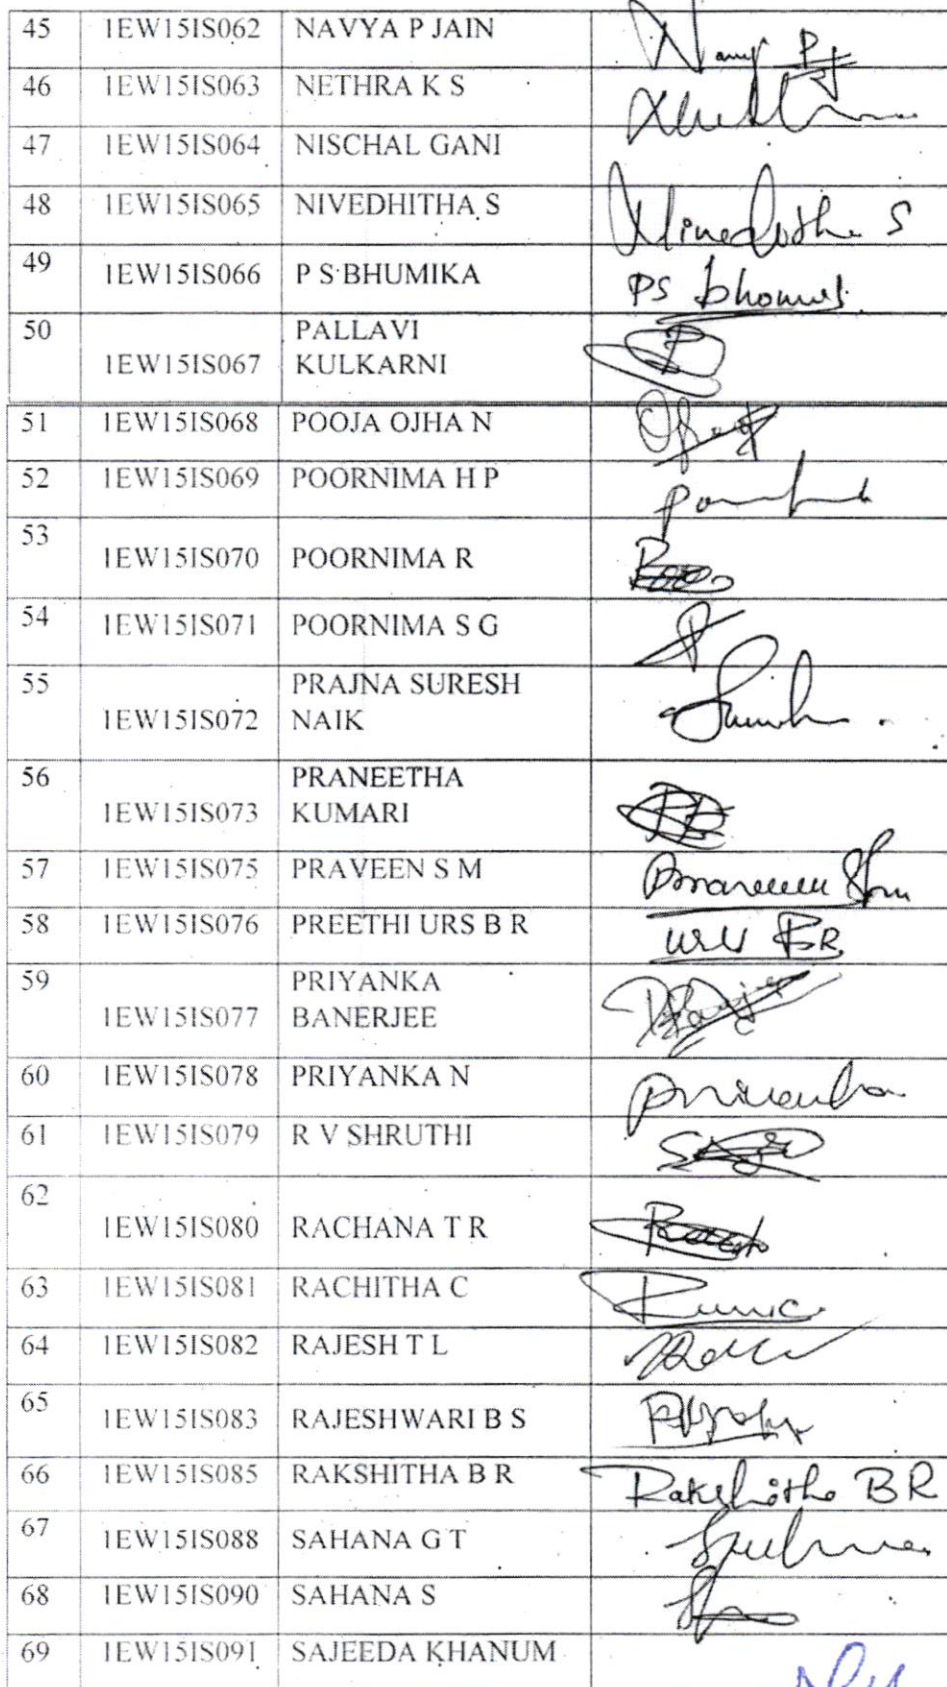 45 1EW15IS062 NAVYA P JAIN
46 1EW15IS063 NETHRA K S
47 1EW15IS064 NISCHAL GANI
48 1EW15IS065 NIVEDHITHA S
Nivedhitha S
49 1EW15IS066 P S BHUMIKA
PS bhumi
50 PALLAVI
1EW15IS067 KULKARNI
51 1EW15IS068 POOJA OJHA N
52 1EW15IS069 POORNIMA H P
53
1EW15IS070 POORNIMA R
54 1EW15IS071 POORNIMA S G
55 PRAJNA SURESH
1EW15IS072 NAIK
56 PRANEETHA
1EW15IS073 KUMARI
57 1EW15IS075 PRAVEEN S M
58 1EW15IS076 PREETHI URS B R
urs BR
59 PRIYANKA
1EW15IS077 BANERJEE
60 1EW15IS078 PRIYANKA N
Priyanka
61 1EW15IS079 R V SHRUTHI
62
1EW15IS080 RACHANA T R
63 1EW15IS081 RACHITHA C
64 1EW15IS082 RAJESH T L
65 1EW15IS083 RAJESHWARI B S
66 1EW15IS085 RAKSHITHA B R
Rakshitha BR
67 1EW15IS088 SAHANA G T
68 1EW15IS090 SAHANA S
69 1EW15IS091 SAJEEDA KHANUM